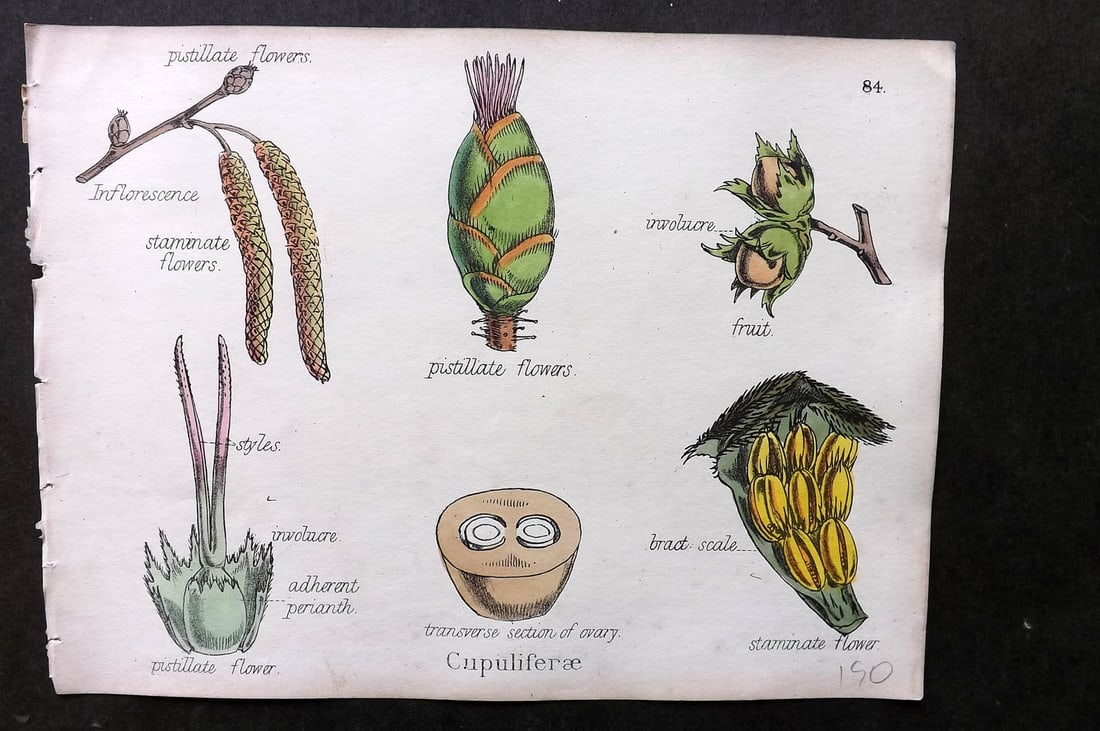 pistillate flowers.
84.
Inflorescence
staminate
flowers.
involucre
fruit.
pistillate flowers.
styles.
involucre.
adherent
perianth.
bract scale
pistillate flower.
transverse section of ovary.
staminate flower.
Cupuliferæ
190